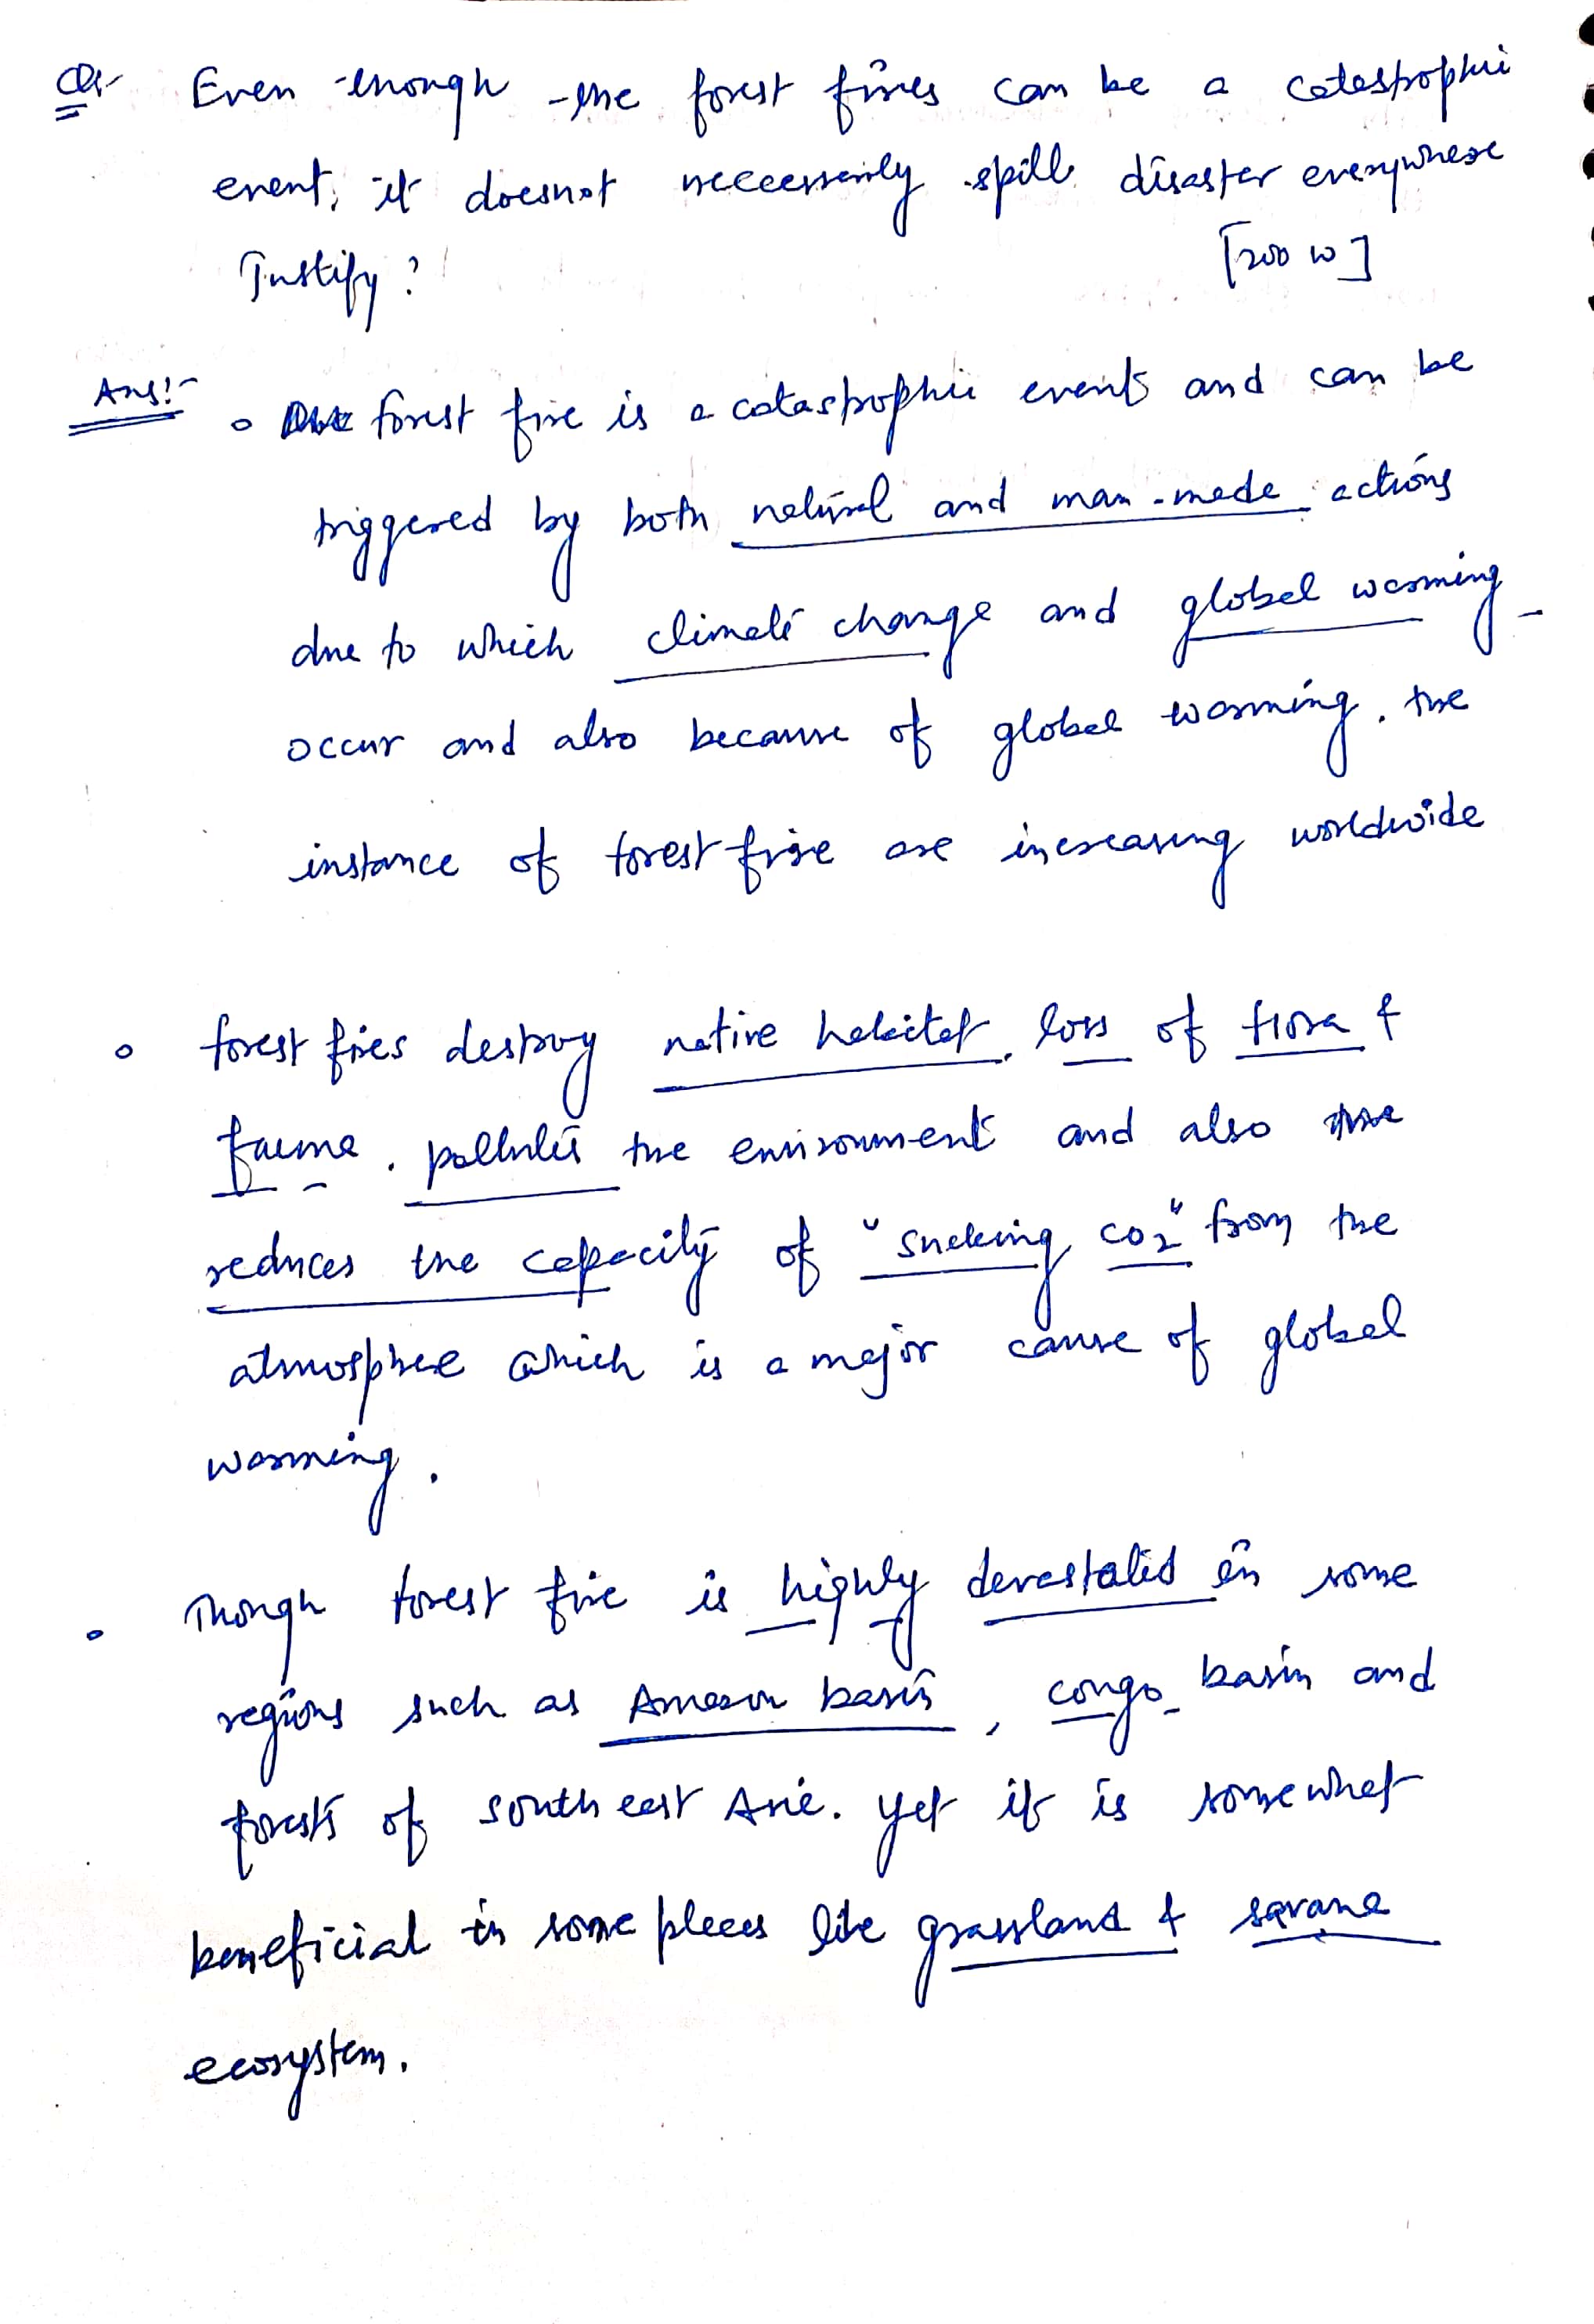 Q:- Even though the forest fires can be a catastrophic
event, it doesnot neccessarily spill disaster everywhere
Justify?
[200 W]
Ans:- forest fire is a catastrophic events and can be
triggered by both natural and man-made actions
due to which climate change and global warming
occur and also because of global warming, the
instance of forest fire are increasing worldwide
forest fires destroy native habitat, loss of flora &
fauna, pollutes the environment and also
reduces the capacity of "sucking CO2" from the
atmosphere which is a major cause of global
warming.
Though forest fire is highly devastated in some
regions such as Amazon basin, congo basin and
forests of south east Asia. yet it is somewhat
beneficial in some places like grassland & savana
ecosystem.